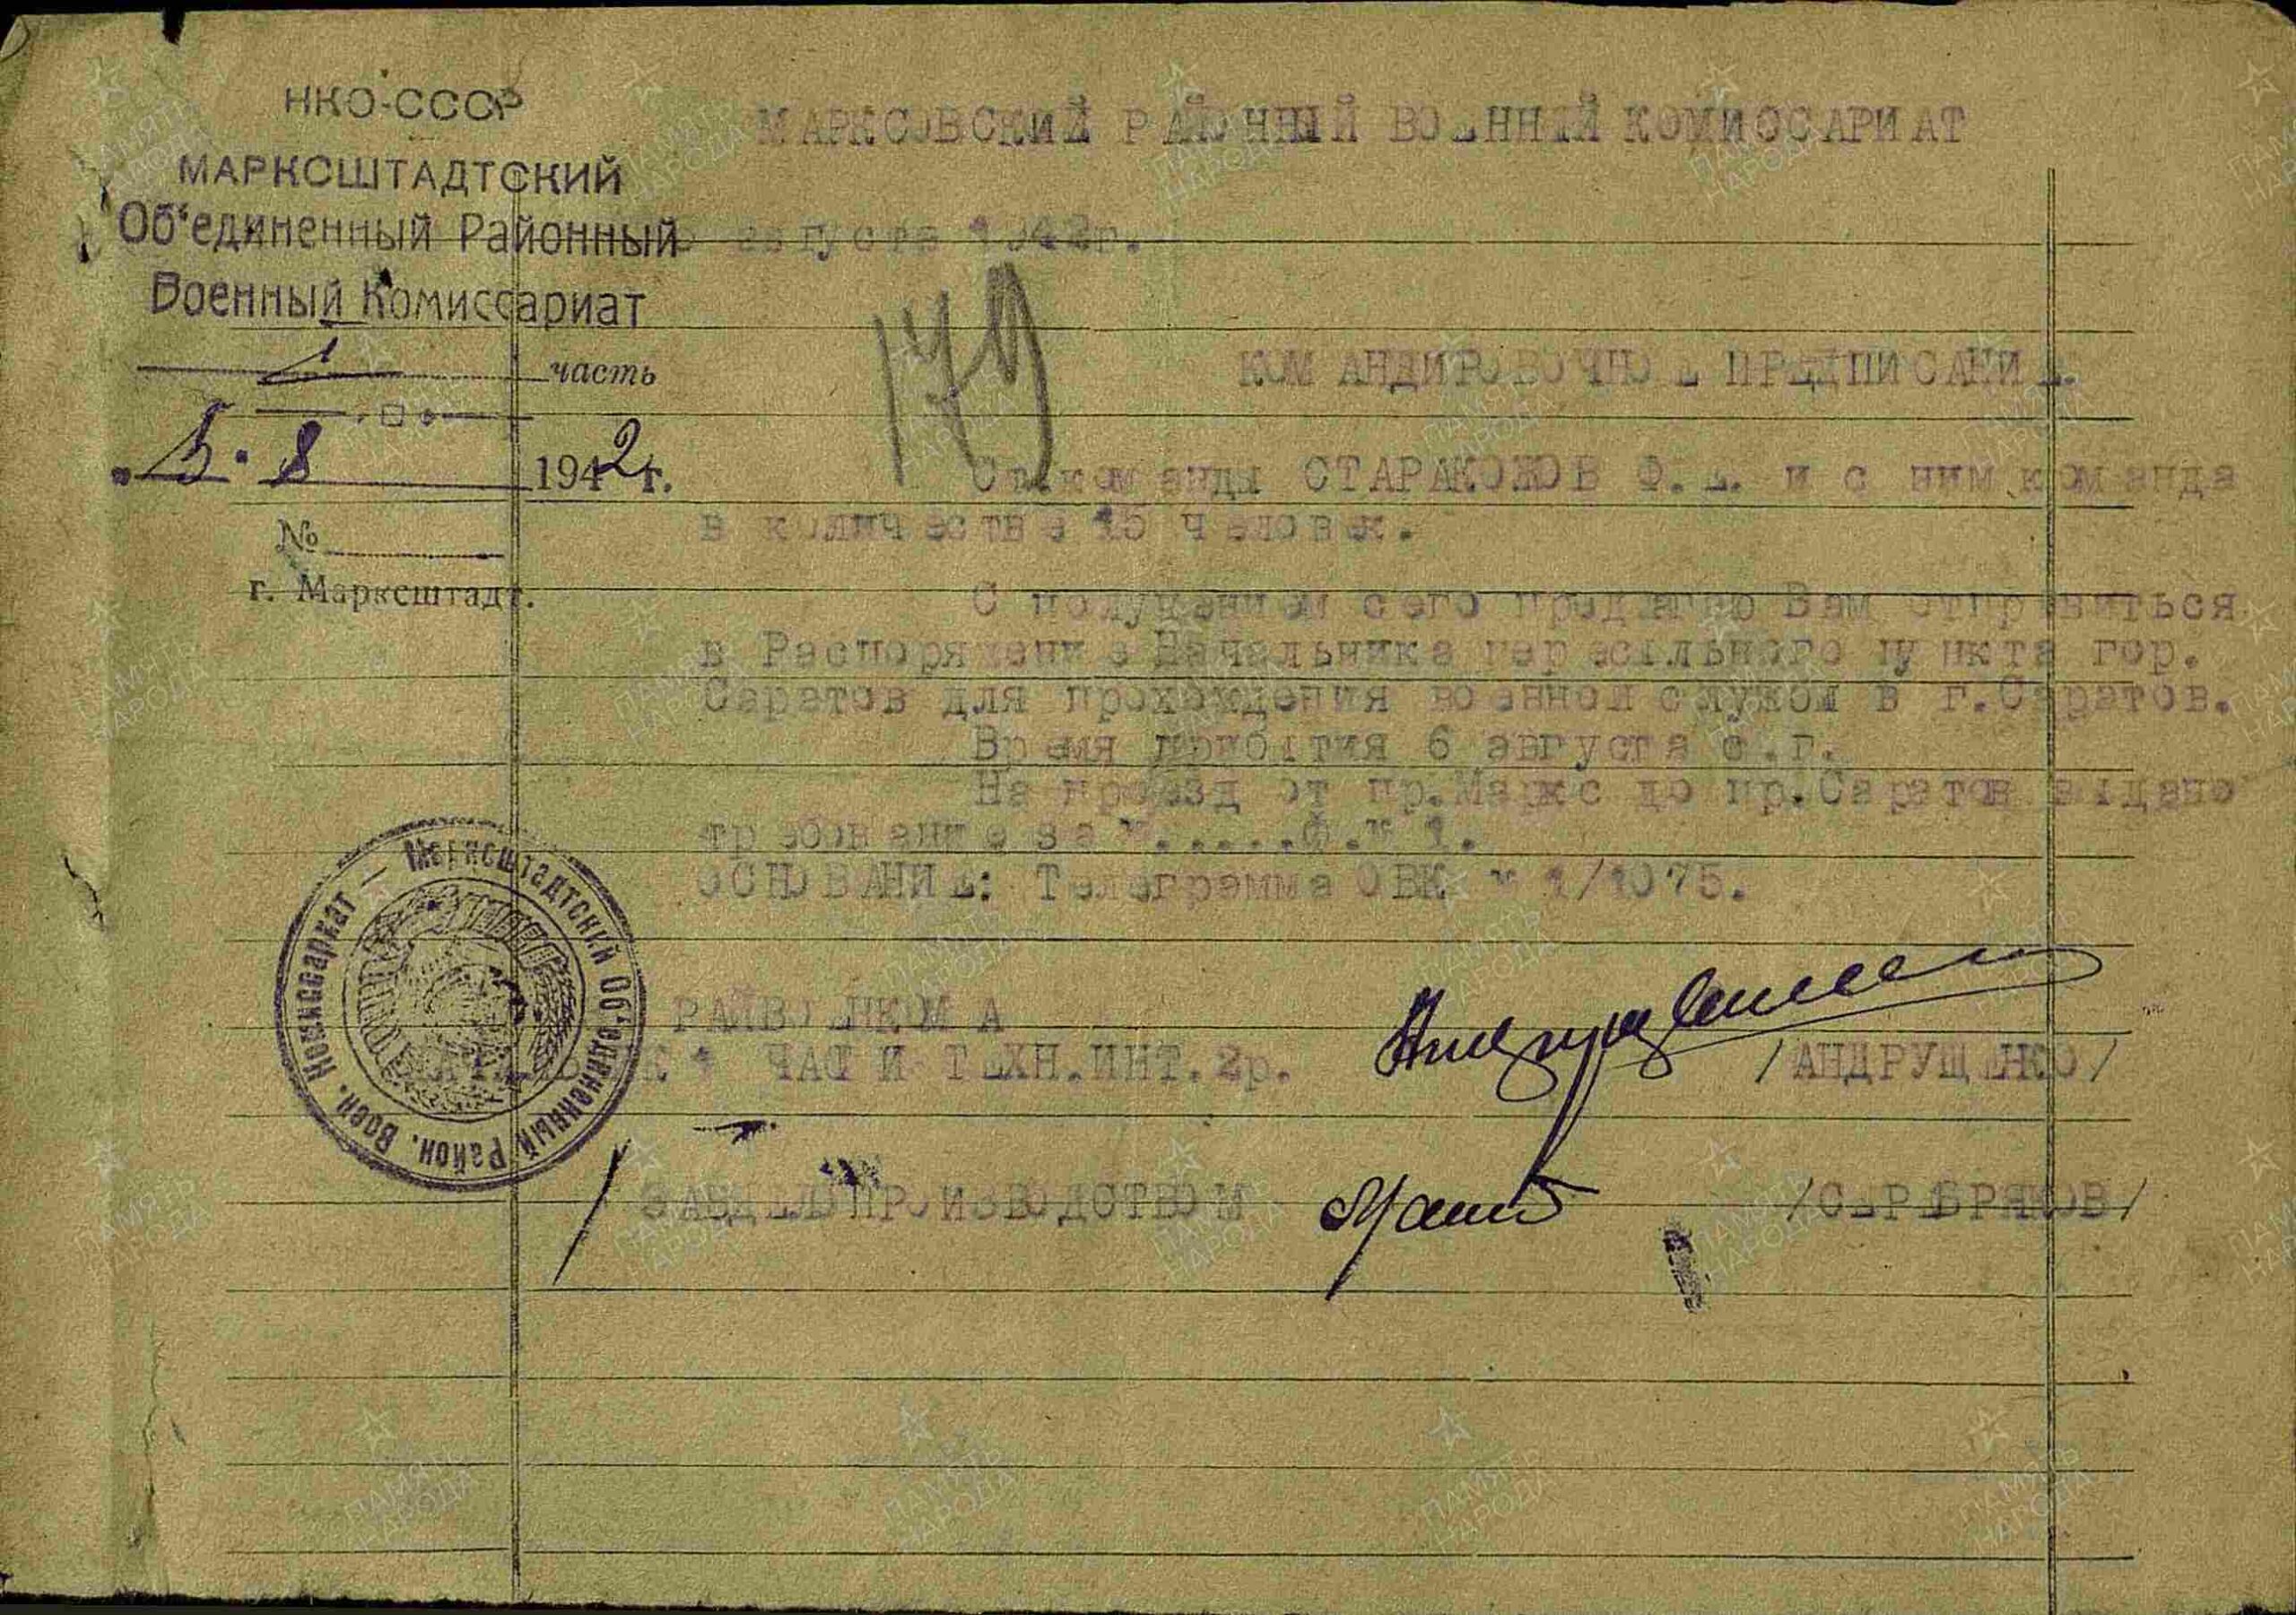 НКО-СССР
МАРКСШТАДТСКИЙ
Об'единенный Районный
Военный Комиссариат
1 часть
5. 8 1942 г.
№
г. Марксштадт.
МАРКСОВСКИЙ РАЙОННЫЙ ВОЕННЫЙ КОМИССАРИАТ
августа 1942г.
149
КОМАНДИРОВОЧНОЕ ПРЕДПИСАНИЕ.
Ст.команды СТАРАКОЖОВ Ф.Е. и с ним команда
в количестве 15 человек.
С получением сего предлагаю Вам отправиться
в Распоряжение Начальника пересыльного пункта гор.
Саратов для прохождения военной службы в г.Саратов.
Время прибытия 6 августа с.г.
На проезд от пр.Маркс до пр.Саратов выдано
требование за №.....ф.№ 1.
ОСНОВАНИЕ: Телеграмма ОВК № 1/1075.
РАЙВОЕНКОМА
1 ЧАСТИ ТЕХН.ИНТ.2р. /АНДРУЩЕНКО/
ЗАВДЕЛОПРОИЗВОДСТВОМ /СЕРЕБРЯКОВ/
Марксштадтский Об'единенный Район. Воен. Комиссариат —
ПАМЯТЬ НАРОДА